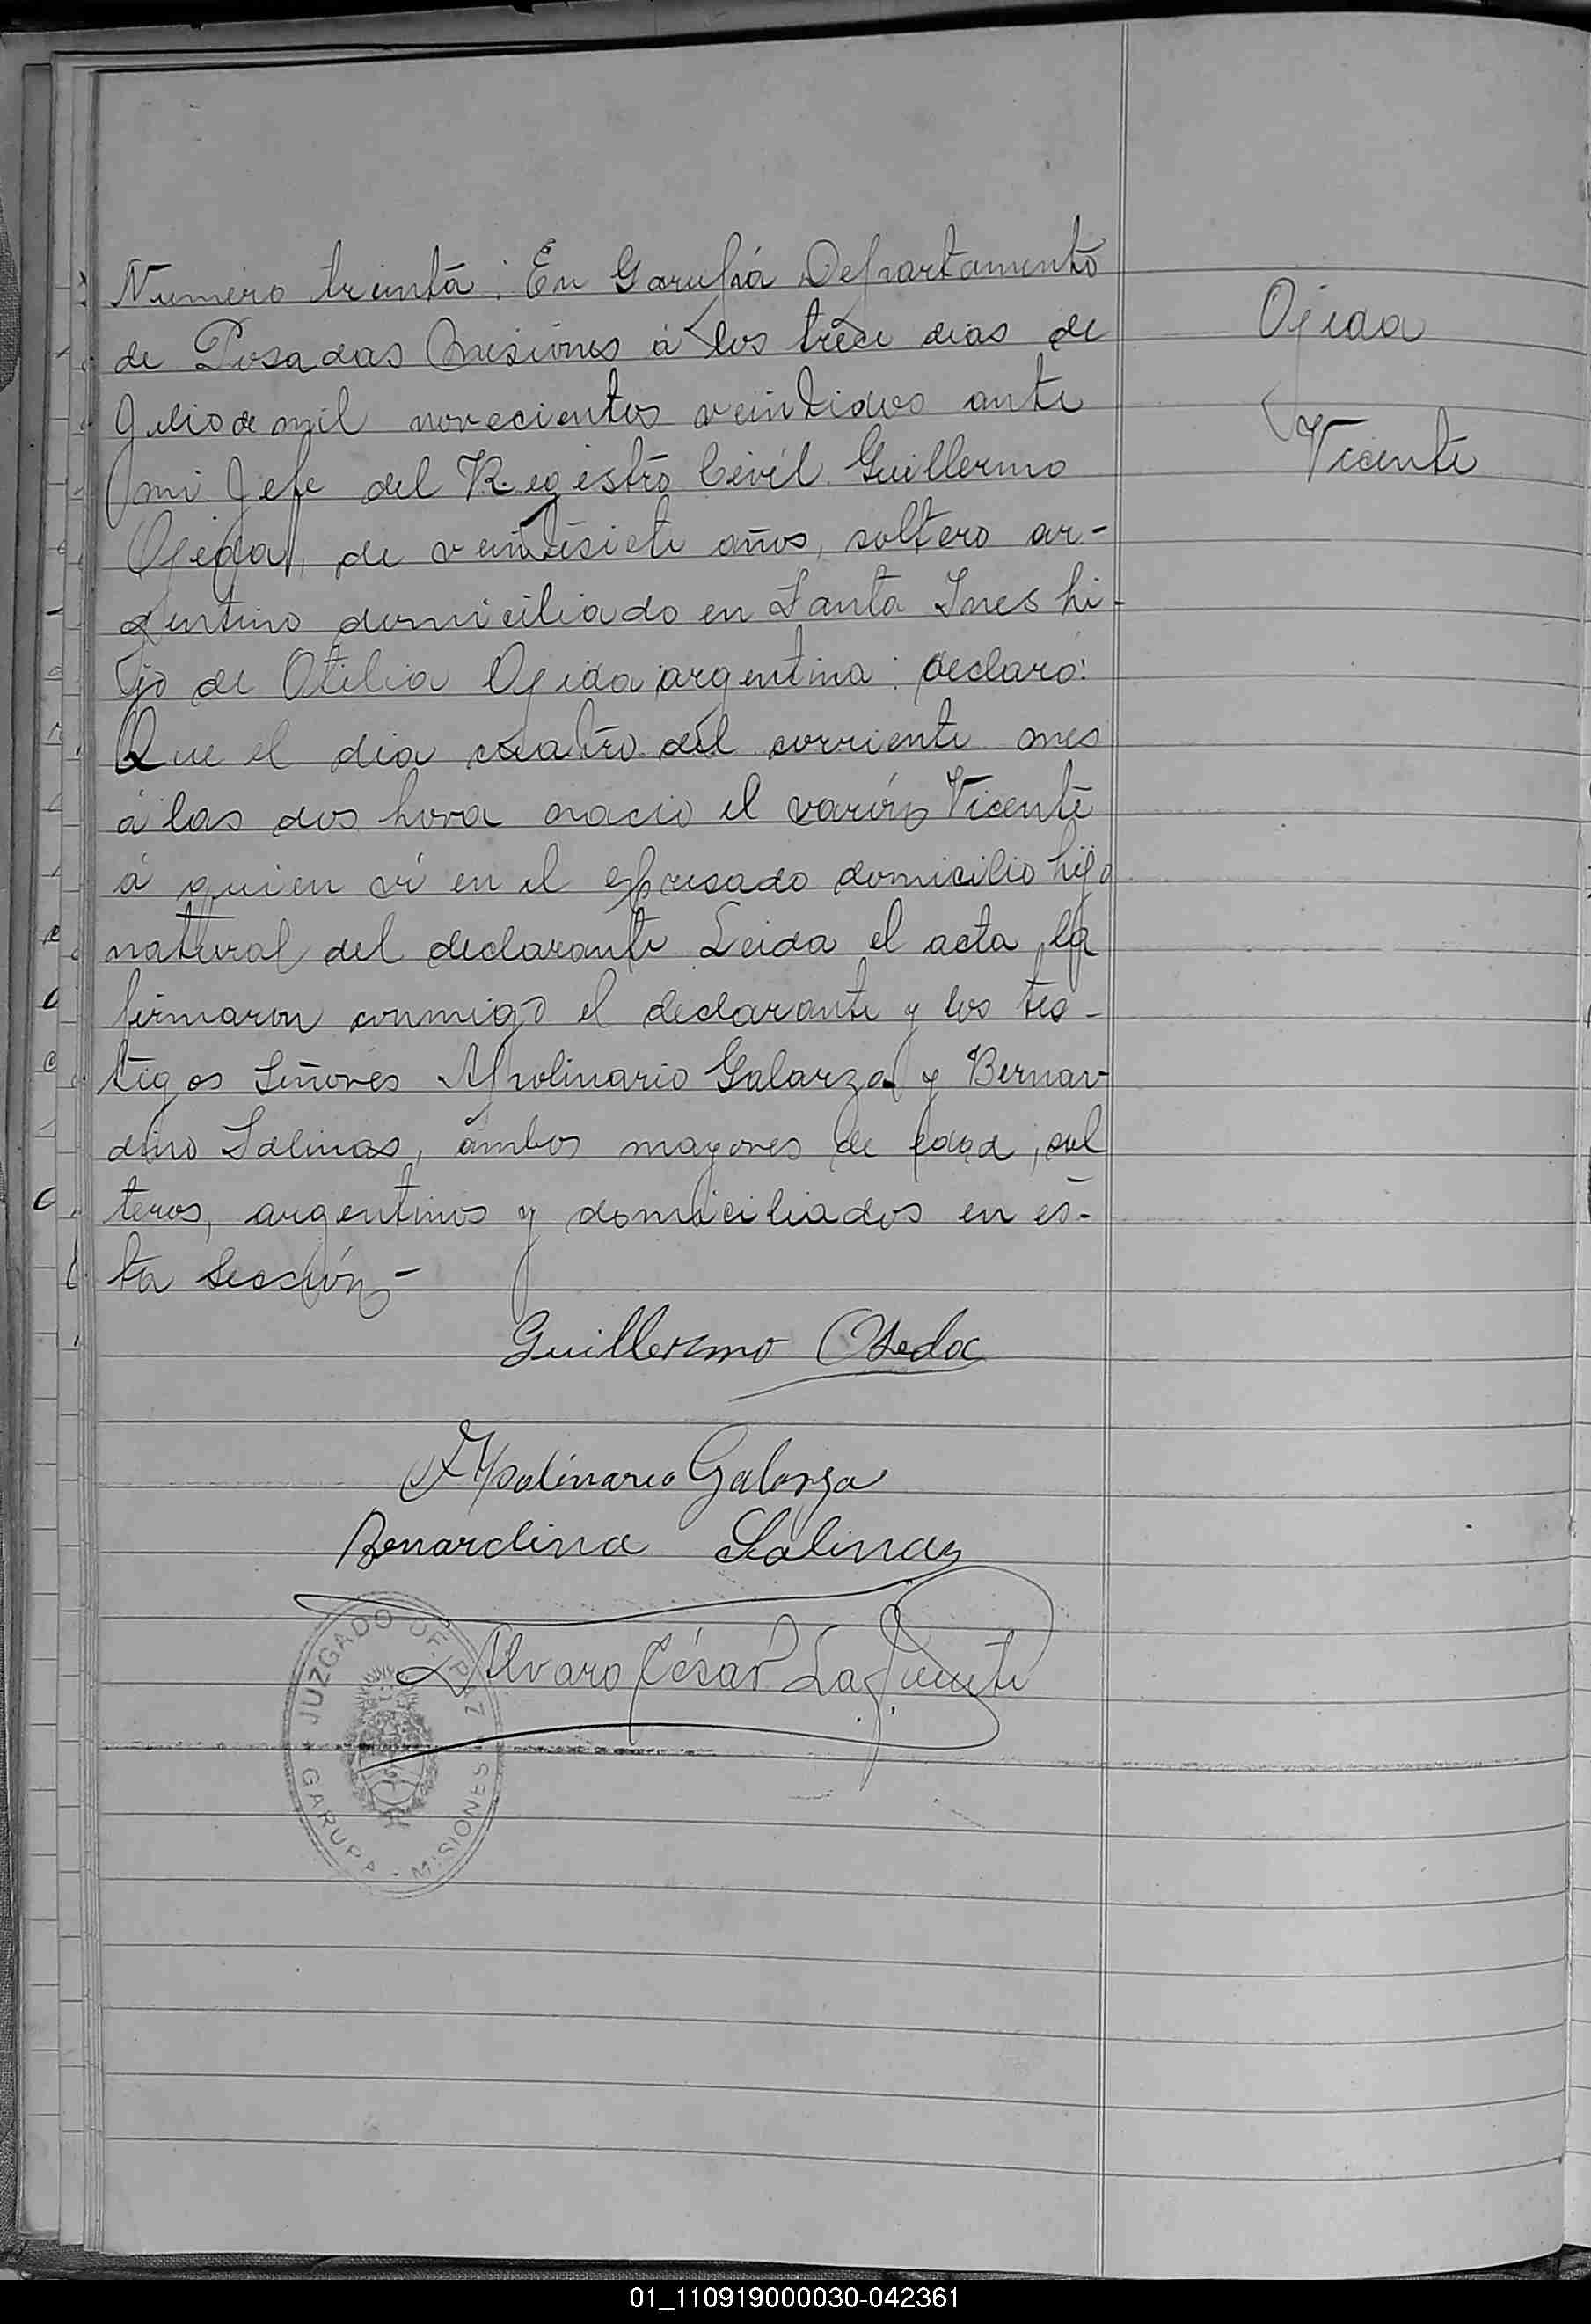 Numero treinta: En Garupá Departamento
de Posadas Misiones á los trece dias de
Julio de mil novecientos veintidos ante
mi Jefe del Registro Civil Guillermo
Ojeda, de veintisiete años, soltero ar-
gentino domiciliado en Santa Ines hi-
jo de Otilia Ojeda argentina: declaró:
Que el dia cuatro del corriente mes
á las dos hora nació el varón Vicente
á quien ví en el espresado domicilio hijo
natural del declarante Leida el acta la
firmaron conmigo el declarante y los tes-
tigos Señores Apolinario Galarza y Bernar
dino Salinas, ámbos mayores de edad, sol
teros, argentinos y domiciliados en es-
ta Sección-
Ojeda
Vicente
Guillermo Ojeda
Apolinario Galarza
Benardina Salinas
Alvaro César Lafuente
JUZGADO DE PAZ
GARUPA - MISIONES
01_110919000030-042361